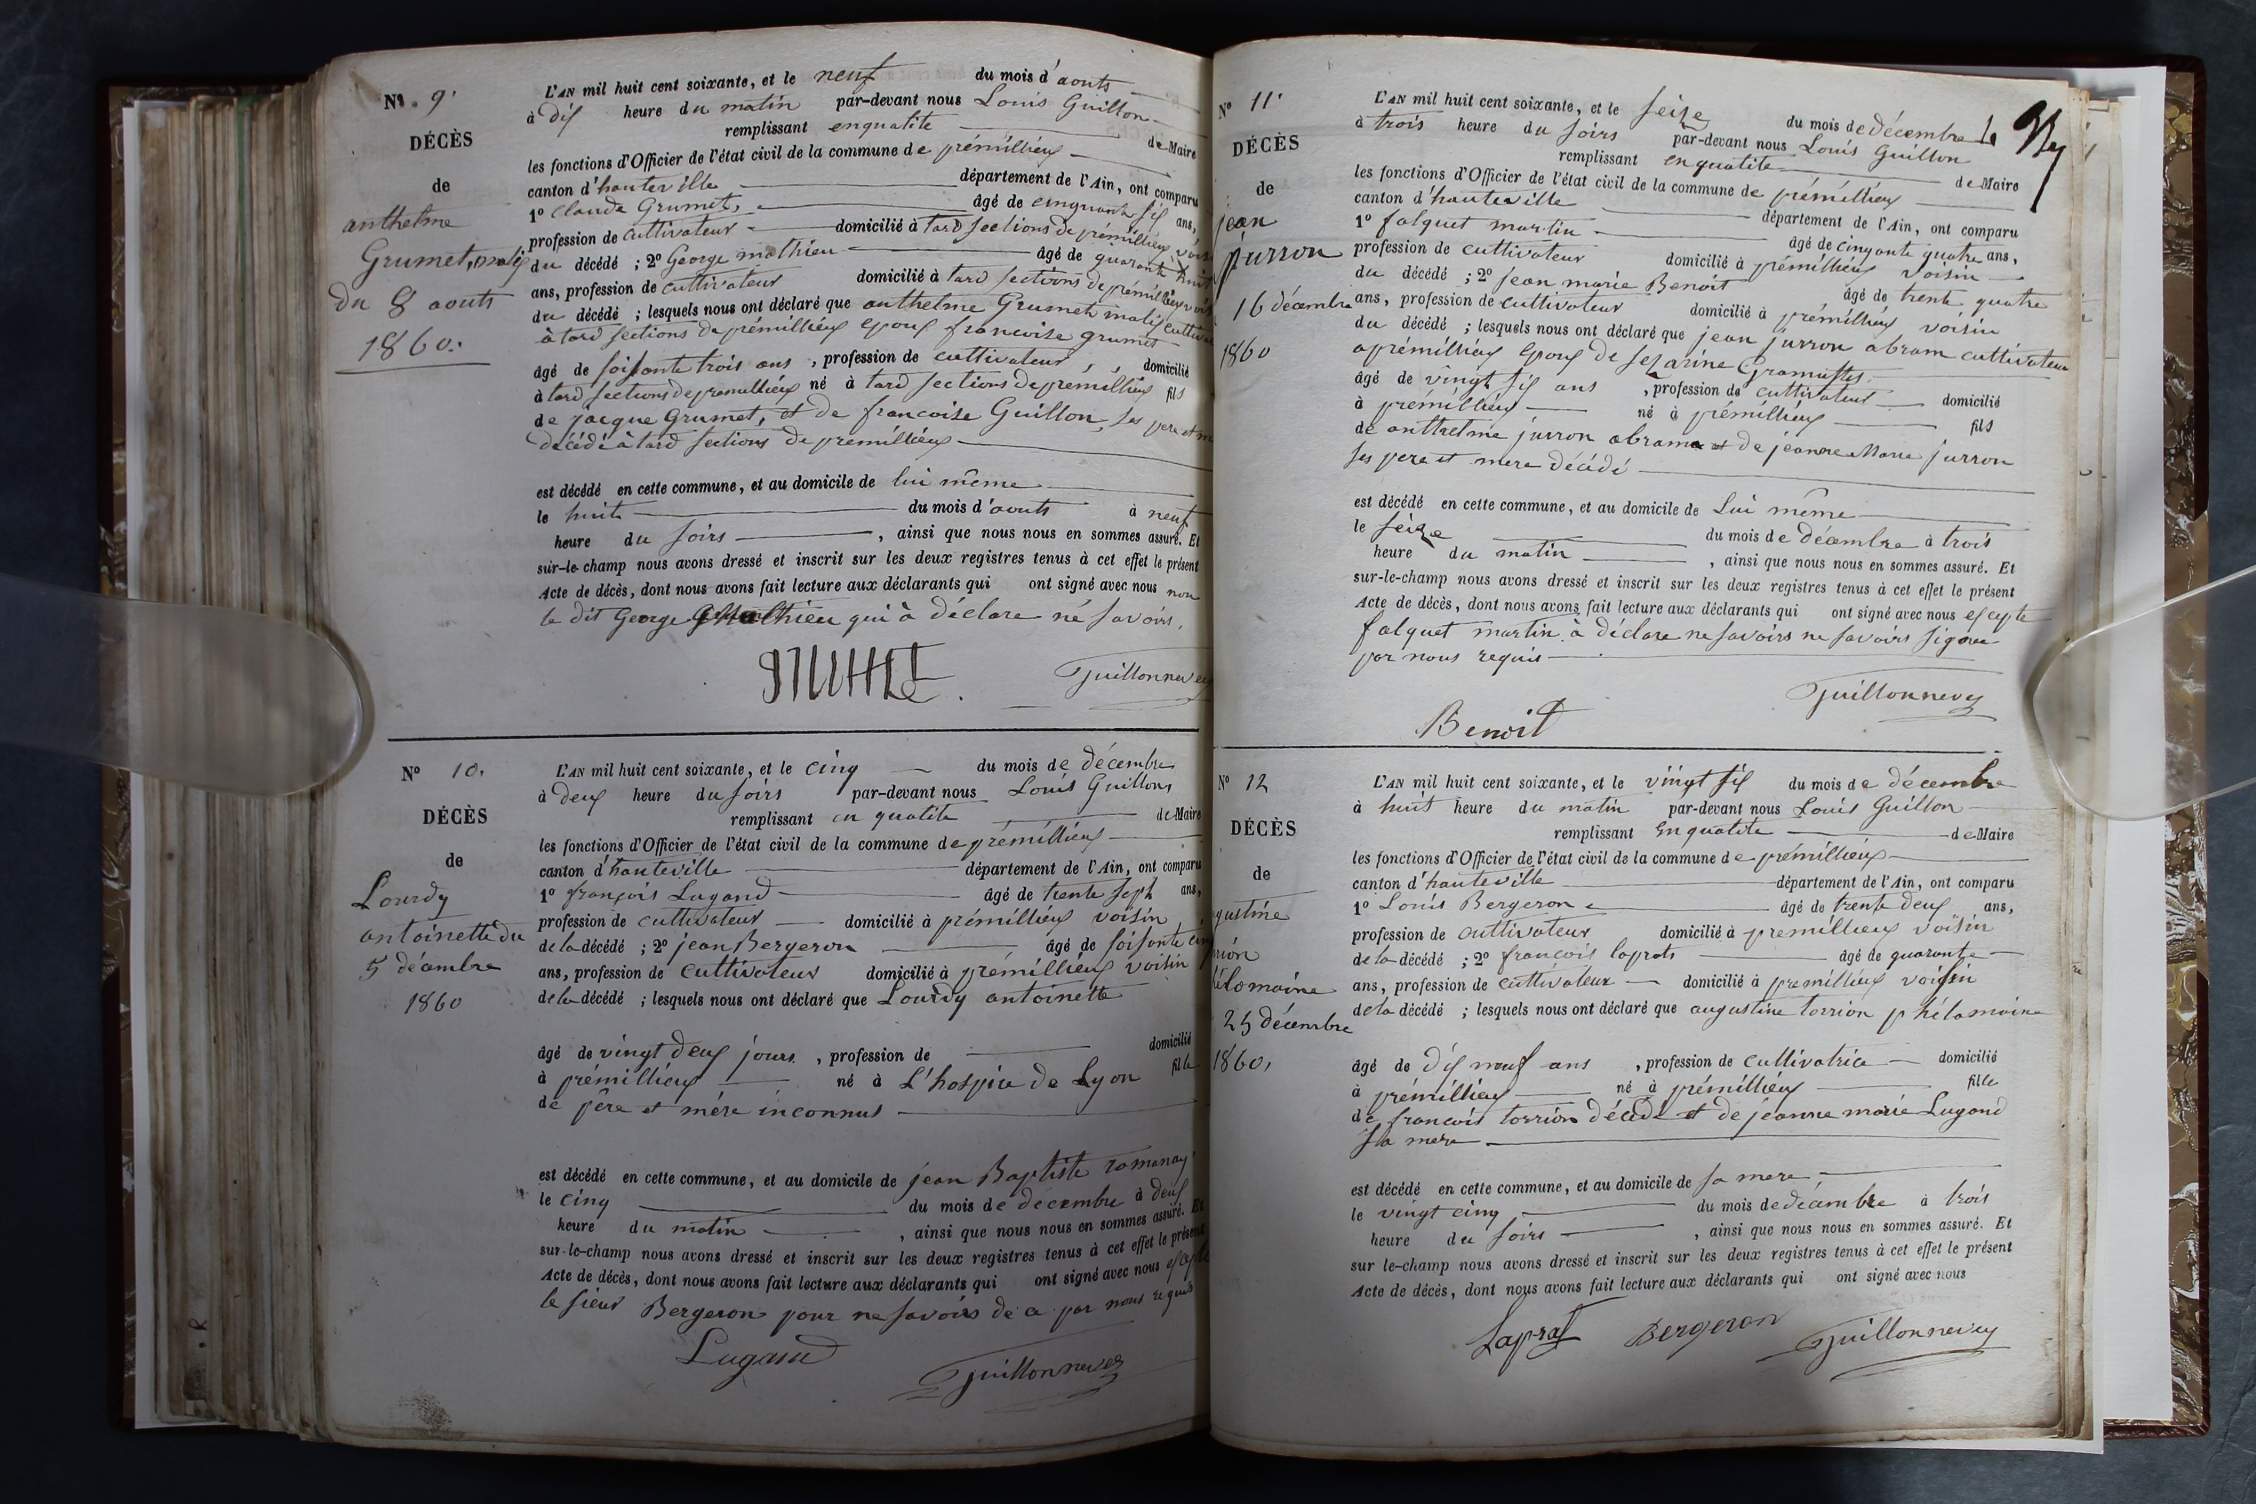 N° 9.
DÉCÈS
de
anthelme
Grumet, matix
du 8 aouts
1860.
L'AN mil huit cent soixante, et le neuf du mois d'aouts
à dix heure du matin par-devant nous Louis Guillon
remplissant enqualite de Maire
les fonctions d'Officier de l'état civil de la commune de prémillieux
canton d'hauteville département de l'Ain, ont comparu
1° Claude Grumet, âgé de cinquante six ans,
profession de cultivateur domicilié à tard sections de prémillieux voisin
du décédé ; 2° George mathieu âgé de quarante huit
ans, profession de cultivateur domicilié à tard sections de prémillieux
du décédé ; lesquels nous ont déclaré que anthelme Grumet matix
à tard sections de prémillieux epoux francoise grumet
âgé de soissante trois ans , profession de cultivateur domicilié
à tard sections de premillieux né à tard sections de prémillieux fils
de jacque Grumet, et de francoise Guillon, ses pere et
décédé à tard sections de premillieux
est décédé en cette commune, et au domicile de lui même
le huit du mois d'aouts à neuf
heure du soirs , ainsi que nous nous en sommes assuré. Et
sur-le-champ nous avons dressé et inscrit sur les deux registres tenus à cet effet le présent
Acte de décès, dont nous avons fait lecture aux déclarants qui ont signé avec nous non
le dit George Mathieu qui à déclare né savoirs.
Guillonnevey
N° 10.
DÉCÈS
de
Lourdy
antoinette du
5 décembre
1860
L'AN mil huit cent soixante, et le cinq du mois de décembre
à deux heure du soirs par-devant nous Louis Guillon
remplissant en qualite de Maire
les fonctions d'Officier de l'état civil de la commune de prémillieux
canton d'hauteville département de l'Ain, ont comparu
1° françois Lugand âgé de trente sept ans,
profession de cultivateur domicilié à prémillieux voisin
de la décédé ; 2° jean Bergeron âgé de soisonte cinq
ans, profession de cultivateur domicilié à prémillieux voisin
de la décédé ; lesquels nous ont déclaré que Lourdy antoinette
âgé de vingt deux jours , profession de domicilié
à prémillieux né à L'hospice de Lyon fille
de père et mére inconnus
est décédé en cette commune, et au domicile de jean Baptiste romanay
le cinq du mois de décembre à deux
heure du matin , ainsi que nous nous en sommes assuré. Et
sur-le-champ nous avons dressé et inscrit sur les deux registres tenus à cet effet le présent
Acte de décès, dont nous avons fait lecture aux déclarants qui ont signé avec nous excepte
le sieur Bergeron pour ne savoirs de ce par nous requis
Lugand
Guillonnevey
N° 11.
DÉCÈS
de
jean
jurron
16 décembre
1860
L'AN mil huit cent soixante, et le seize du mois de décembre
à trois heure du soirs par-devant nous Louis Guillon
remplissant enqualite de Maire
les fonctions d'Officier de l'état civil de la commune de prémillieux
canton d'hauteville département de l'Ain, ont comparu
1° falquet martin âgé de cinqante quatre ans,
profession de cultivateur domicilié à prémillieux voisin
du décédé ; 2° jean marie Benoit âgé de trente quatre
ans, profession de cultivateur domicilié à prémillieux voisin
du décédé ; lesquels nous ont déclaré que jean jurron abram cultivateur
a prémillieux epoux de sezarine Gramusset
âgé de vingt six ans , profession de cultivateur domicilié
à premillieux né à prémillieux fils
de anthelme jurron abram et de jeanne Marie jurron
ses pere et mere décédé
est décédé en cette commune, et au domicile de Lui même
le seize du mois de décembre à trois
heure du matin , ainsi que nous nous en sommes assuré. Et
sur-le-champ nous avons dressé et inscrit sur les deux registres tenus à cet effet le présent
Acte de décès, dont nous avons fait lecture aux déclarants qui ont signé avec nous excepte
falquet martin à déclare ne savoirs ne savoirs signer
par nous requis
Guillonnevey
Benoit
N° 12
DÉCÈS
de
gustine
rion
élomoine
25 décembre
1860,
L'AN mil huit cent soixante, et le vingt six du mois de décembre
à huit heure du matin par-devant nous Louis Guillon
remplissant enqualite de Maire
les fonctions d'Officier de l'état civil de la commune de prémillieux
canton d'hauteville département de l'Ain, ont comparu
1° Louis Bergeron âgé de trente deux ans,
profession de cultivateur domicilié à premillieux voisin
de la décédé ; 2° francois laprats âgé de quaronte
ans, profession de cultivateur domicilié à premillieux voisin
de la décédé ; lesquels nous ont déclaré que augustine torrion phélomoine
âgé de dix neuf ans , profession de cultivatrice domicilié
à prémillieux né à prémillieux fille
de francois torrion décédé et de jeanne marie Lugand
sa mere
est décédé en cette commune, et au domicile de sa mere
le vingt cinq du mois de décembre à trois
heure du soirs , ainsi que nous nous en sommes assuré. Et
sur le-champ nous avons dressé et inscrit sur les deux registres tenus à cet effet le présent
Acte de décès, dont nous avons fait lecture aux déclarants qui ont signé avec nous
Laprat Bergeron Guillonnevey